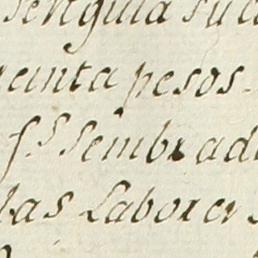 senguida su c
reinta pesos.
f.s sembrad
las Labores